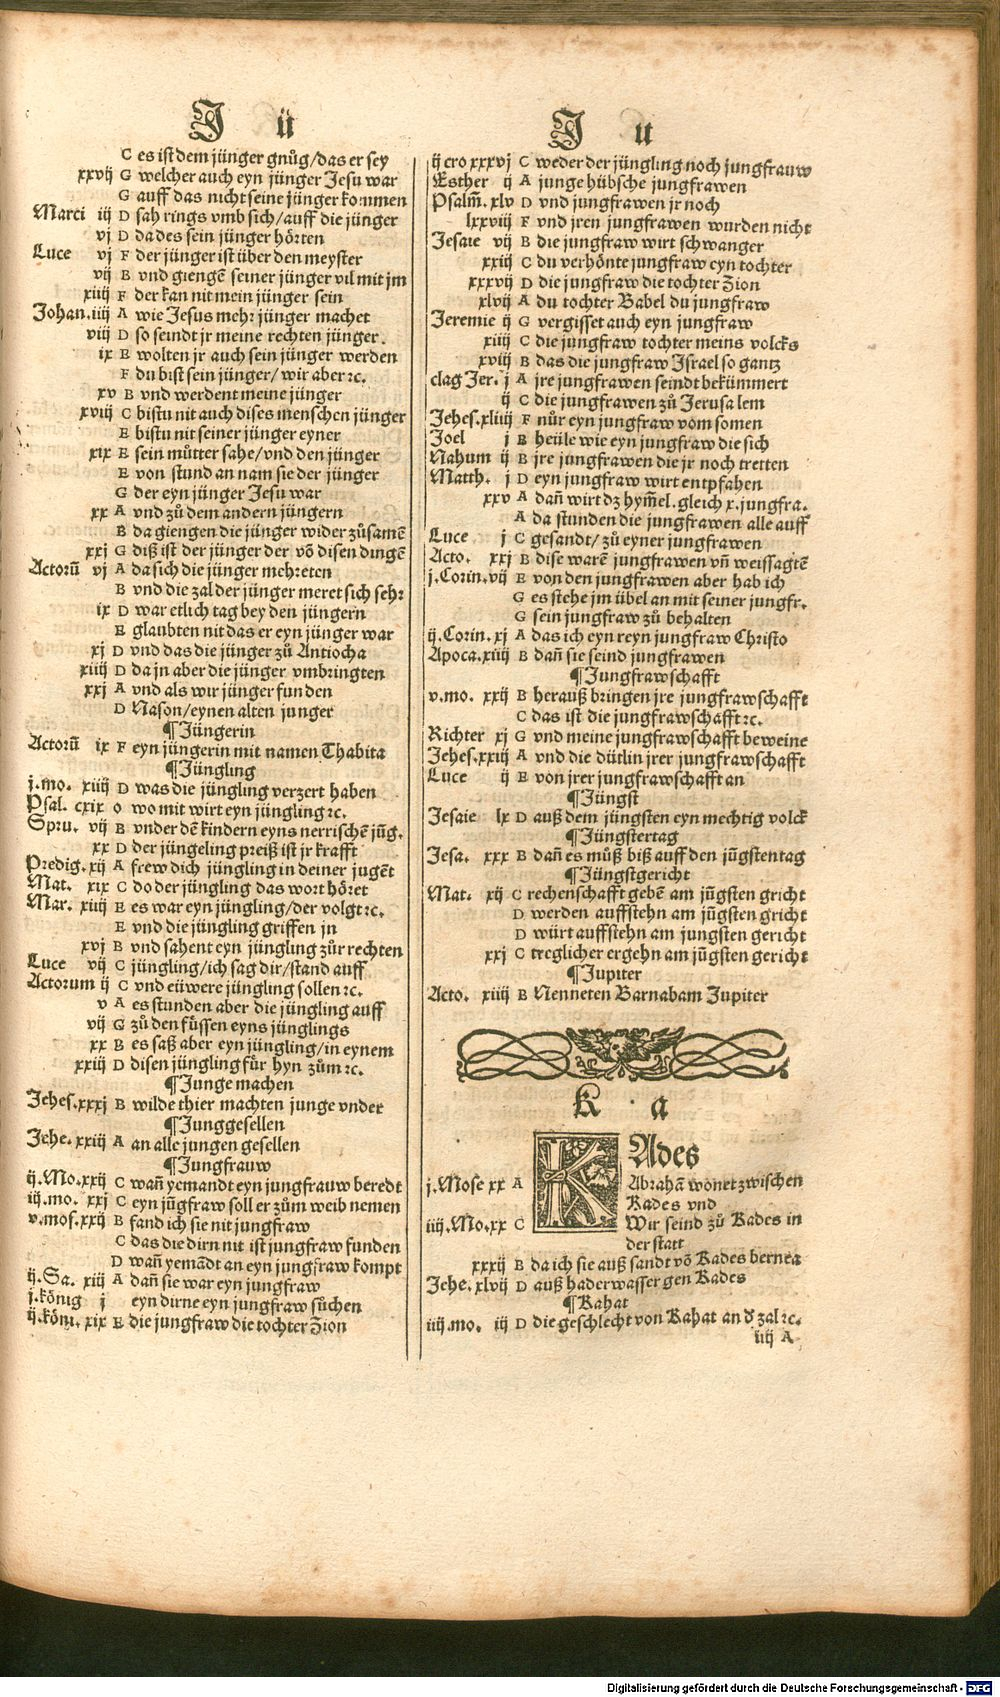 J ü
C es ist dem jünger gnůg/das er sey
xxvij G welcher auch eyn jünger Jesu war
G auff das nicht seine jünger kommen
Marci iij D sah rings vmb sich/auff die jünger
vj D da des sein jünger hörten
Luce vj F der jünger ist über den meyster
vij B vnd giengē seiner jünger vil mit jm
xiiij F der kan nit mein jünger sein
Johan. iiij A wie Jesus mehr jünger machet
viij D so seindt jr meine rechten jünger.
ix E wolten jr auch sein jünger werden
F du bist sein jünger/ wir aber ꝛc.
xv B vnd werdent meine jünger
xviij C bistu nit auch dises menschen jünger
E bistu nit seiner jünger eyner
xix E sein můtter sahe/vnd den jünger
E von stund an nam sie der jünger
G der eyn jünger Jesu war
xx A vnd zů dem andern jüngern
B da giengen die jünger wider zůsamē
xxj G diß ist der jünger der vō disen dingē
Actorū vj A da sich die jünger mehreten
B vnd die zal der jünger meret sich sehr
ix D war etlich tag bey den jüngern
E glaubten nit das er eyn jünger war
xj D vnd das die jünger zů Antiocha
xiiij D da jn aber die jünger vmbringten
xxj A vnd als wir jünger funden
D Nason/eynen alten junger
¶Jüngerin
Actorū ix F eyn jüngerin mit namen Thabita
¶Jüngling
j.mo. xiiij D was die jüngling verzert haben
Psal. cxix o wo mit wirt eyn jüngling ꝛc.
Spru. vij B vnder dē kindern eyns nerrischē jūg.
xx D der jüngeling preiß ist jr krafft
Predig. xij A frew dich jüngling in deiner jugēt
Mat. xix C do der jüngling das wort höret
Mar. xiiij E es war eyn jüngling/der volgt ꝛc.
E vnd die jüngling griffen jn
xvj B vnd sahent eyn jüngling zůr rechten
Luce vij C jüngling/ich sag dir/stand auff
Actorum ij C vnd eüwere jüngling sollen ꝛc.
v A es stunden aber die jüngling auff
vij G zů den füssen eyns jünglings
xx B es saß aber eyn jüngling/in eynem
xxiij D disen jüngling für hyn zům ꝛc.
¶Junge machen
Jehes. xxxj B wilde thier machten junge vnder
¶Junggesellen
Jehe. xxiij A an alle jungen gesellen
¶Jungfrauw
ij.Mo.xxij C wañ yemandt eyn jungfrauw beredt
iij.mo. xxj C eyn jūgfraw soll er zům weib nemen
v.mos. xxij B fand ich sie nit jungfraw
C das die dirn nit ist jungfraw funden
D wañ yemādt an eyn jungfraw kompt
ij.Sa. xiij A dañ sie war eyn jungfraw
j.König j eyn dirne eyn jungfraw sůchen
ij.köni. xix E die jungfraw die tochter Zion
J u
ij cro xxxvj C weder der jüngling noch jungfrauw
Esther ij A junge hübsche jungfrawen
Psalm̄. xlv D vnd jungfrawen jr noch
lxxviij F vnd jren jungfrawen wurden nicht
Jesaie vij B die jungfraw wirt schwanger
xxiij C du verhönte jungfraw eyn tochter
xxxvij D die jungfraw die tochter Zion
xlvij A du tochter Babel du jungfraw
Jeremie ij G vergisset auch eyn jungfraw
xiiij C die jungfraw tochter meins volcks
xviij B das die jungfraw Israel so gantz
clag Jer. j A jre jungfrawen seindt bekümmert
ij C die jungfrawen zů Jerusalem
Jehes. xliiij F nůr eyn jungfraw vom somen
Joel j B heüle wie eyn jungfraw die sich
Nahum ij B jre jungfrawen die jr noch tretten
Matth. j D eyn jungfraw wirt entpfahen
xxv A dañ wirt dz hym̄el. gleich x. jungfra.
A da stunden die jungfrawen alle auff
Luce j C gesandt/ zů eyner jungfrawen
Acto. xxj B dise warē jungfrawen vñ weissagtē
j.Corin. vij E von den jungfrawen aber hab ich
G es stehe jm übel an mit seiner jungfr.
G sein jungfraw zů behalten
ij.Corin. xj A das ich eyn reyn jungfraw Christo
Apoca. xiiij B dañ sie seind jungfrawen
¶Jungfrawschafft
v.mo. xxij B herauß bringen jre jungfrawschafft
C das ist die jungfrawschafft ꝛc.
Richter xj G vnd meine jungfrawschafft beweine
Jehes. xxiij A vnd die dütlin jrer jungfrawschafft
Luce ij E von jrer jungfrawschafft an
¶Jüngst
Jesaie lx D auß dem jüngsten eyn mechtig volck
¶Jüngstertag
Jesa. xxx B dañ es můß biß auff den jūgsten tag
¶Jüngstgericht
Mat. xij C rechenschafft gebē am jūgsten gricht
D werden auffstehn am jūgsten gricht
D würt auffstehn am jungsten gericht
xxj C treglicher ergehn am jūgsten gericht
¶Jupiter
Acto. xiiij B Nenneten Barnabam Jupiter
K a
KAdes
j.Mose xx A Abrahā wonet zwischen
Kades vnd
iiij.Mo.xx C Wir seind zů Kades in
der statt
xxxij B da ich sie auß sandt vō Kades bernea
Jehe. xlvij D auß haderwasser gen Kades
¶Kahat
iiij.mo. iij D die geschlecht von Kahat an d̄ zal ꝛc.
iiij A
Digitalisierung gefördert durch die Deutsche Forschungsgemeinschaft - DFG